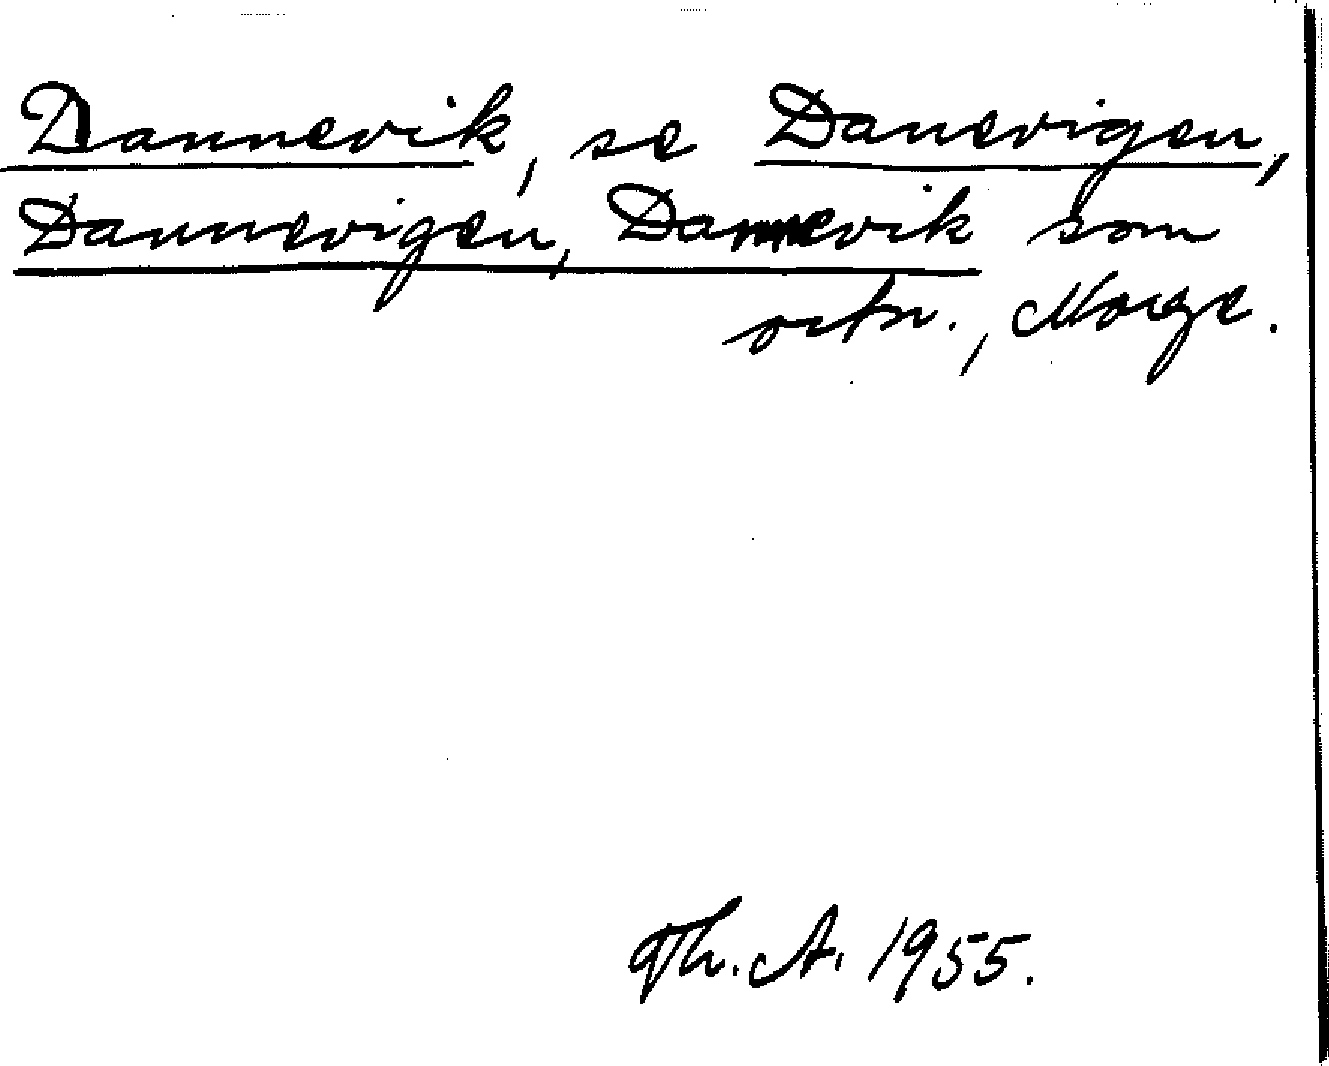 Dannevik, se Danevigen,
Dannevigen, Dannevik som
ortn., Norge.
Th. A. 1955.